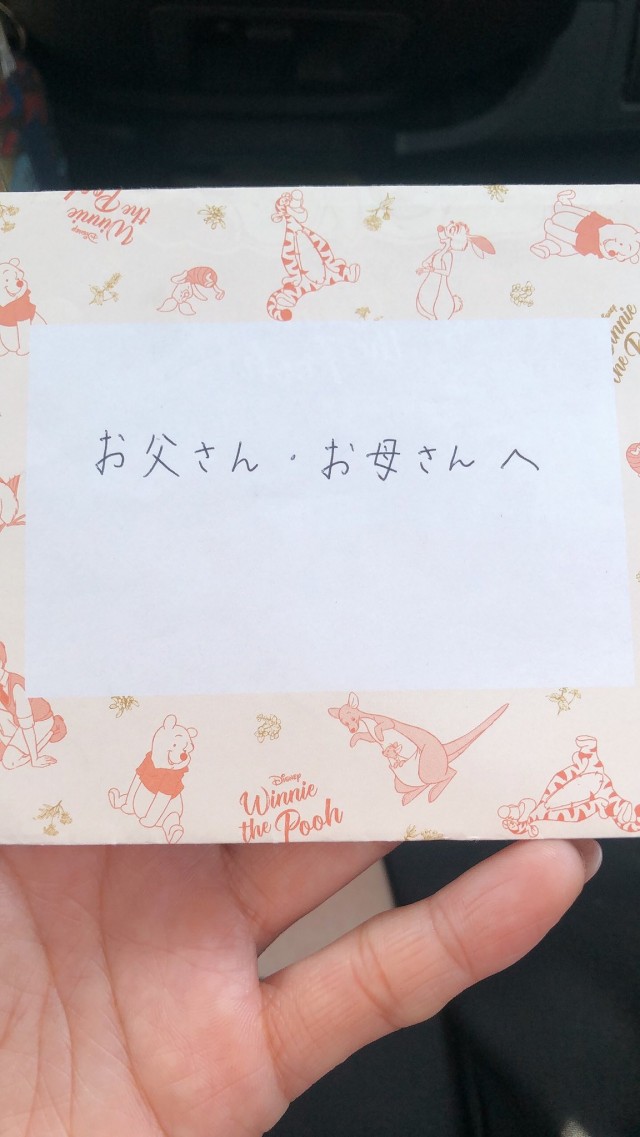 Disney
Winnie
the Poo
お父さん・お母さんへ
Disney
Winnie
the Pooh